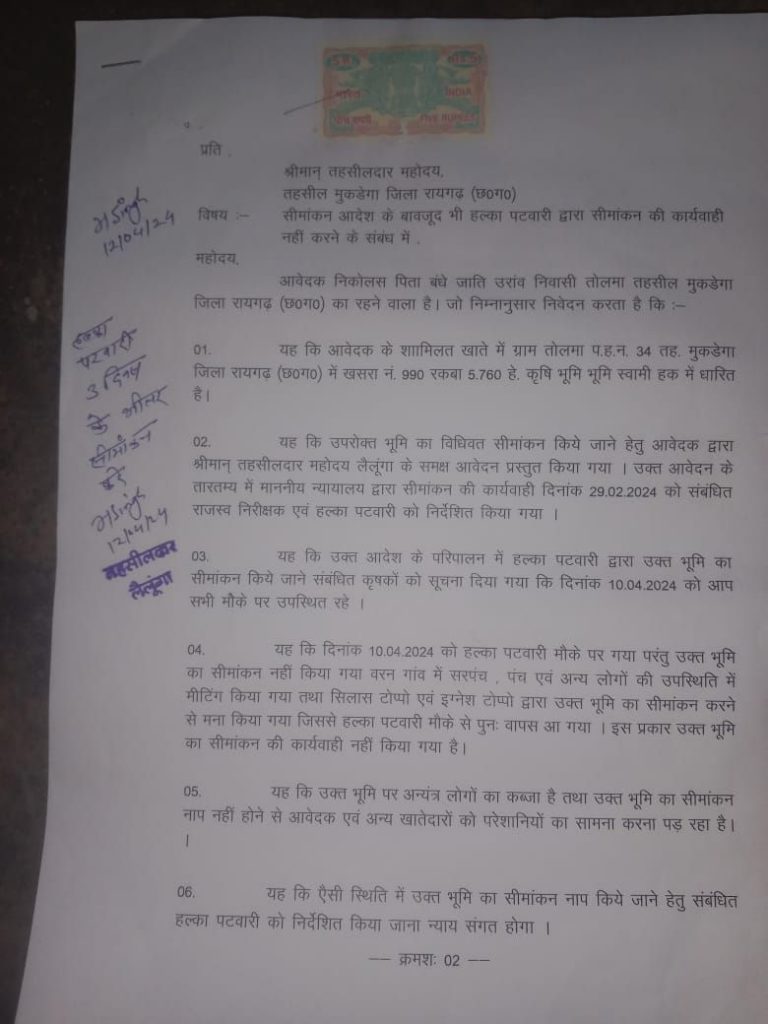 भारत
INDIA
FIVE RUPEES
प्रति ,
श्रीमान् तहसीलदार महोदय,
तहसील मुकडेगा जिला रायगढ़ (छ०ग०)
विषय :– सीमांकन आदेश के बावजूद भी हल्का पटवारी द्वारा सीमांकन की कार्यवाही
नहीं करने के संबंध में .
महोदय,
आवेदक निकोलस पिता बंधे जाति उरांव निवासी तोलमा तहसील मुकडेगा
जिला रायगढ़ (छ०ग०) का रहने वाला है। जो निम्नानुसार निवेदन करता है कि :–
01. यह कि आवेदक के शाामिलत खाते में ग्राम तोलमा प.ह.न. 34 तह. मुकडेगा
जिला रायगढ़ (छ०ग०) में खसरा नं. 990 रकबा 5.760 हे. कृषि भूमि भूमि स्वामी हक में धारित
है।
02. यह कि उपरोक्त भूमि का विधिवत सीमांकन किये जाने हेतु आवेदक द्वारा
श्रीमान् तहसीलदार महोदय लैलूंगा के समक्ष आवेदन प्रस्तुत किया गया । उक्त आवेदन के
तारतम्य में माननीय न्यायालय द्वारा सीमांकन की कार्यवाही दिनांक 29.02.2024 को संबंधित
राजस्व निरीक्षक एवं हल्का पटवारी को निर्देशित किया गया ।
03. यह कि उक्त आदेश के परिपालन में हल्का पटवारी द्वारा उक्त भूमि का
सीमांकन किये जाने संबंधित कृषकों को सूचना दिया गया कि दिनांक 10.04.2024 को आप
सभी मौके पर उपस्थित रहे ।
04. यह कि दिनांक 10.04.2024 को हल्का पटवारी मौके पर गया परंतु उक्त भूमि
का सीमांकन नहीं किया गया वरन गांव में सरपंच , पंच एवं अन्य लोगों की उपस्थिति में
मीटिंग किया गया तथा सिलास टोप्पो एवं इग्नेश टोप्पो द्वारा उक्त भूमि का सीमांकन करने
से मना किया गया जिससे हल्का पटवारी मौके से पुनः वापस आ गया । इस प्रकार उक्त भूमि
का सीमांकन की कार्यवाही नहीं किया गया है।
05. यह कि उक्त भूमि पर अन्यंत्र लोगों का कब्जा है तथा उक्त भूमि का सीमांकन
नाप नहीं होने से आवेदक एवं अन्य खातेदारों को परेशानियों का सामना करना पड़ रहा है।
।
06. यह कि ऐसी स्थिति में उक्त भूमि का सीमांकन नाप किये जाने हेतु संबंधित
हल्का पटवारी को निर्देशित किया जाना न्याय संगत होगा ।
–– क्रमशः 02 ––
12/04/24
हल्का
पटवारी
3 दिवस
के भीतर
सीमांकन
करें
12/04/24
तहसीलदार
लैलूंगा